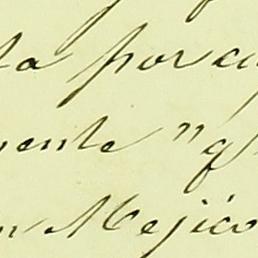 ta por cu
mente "q
n Mejico